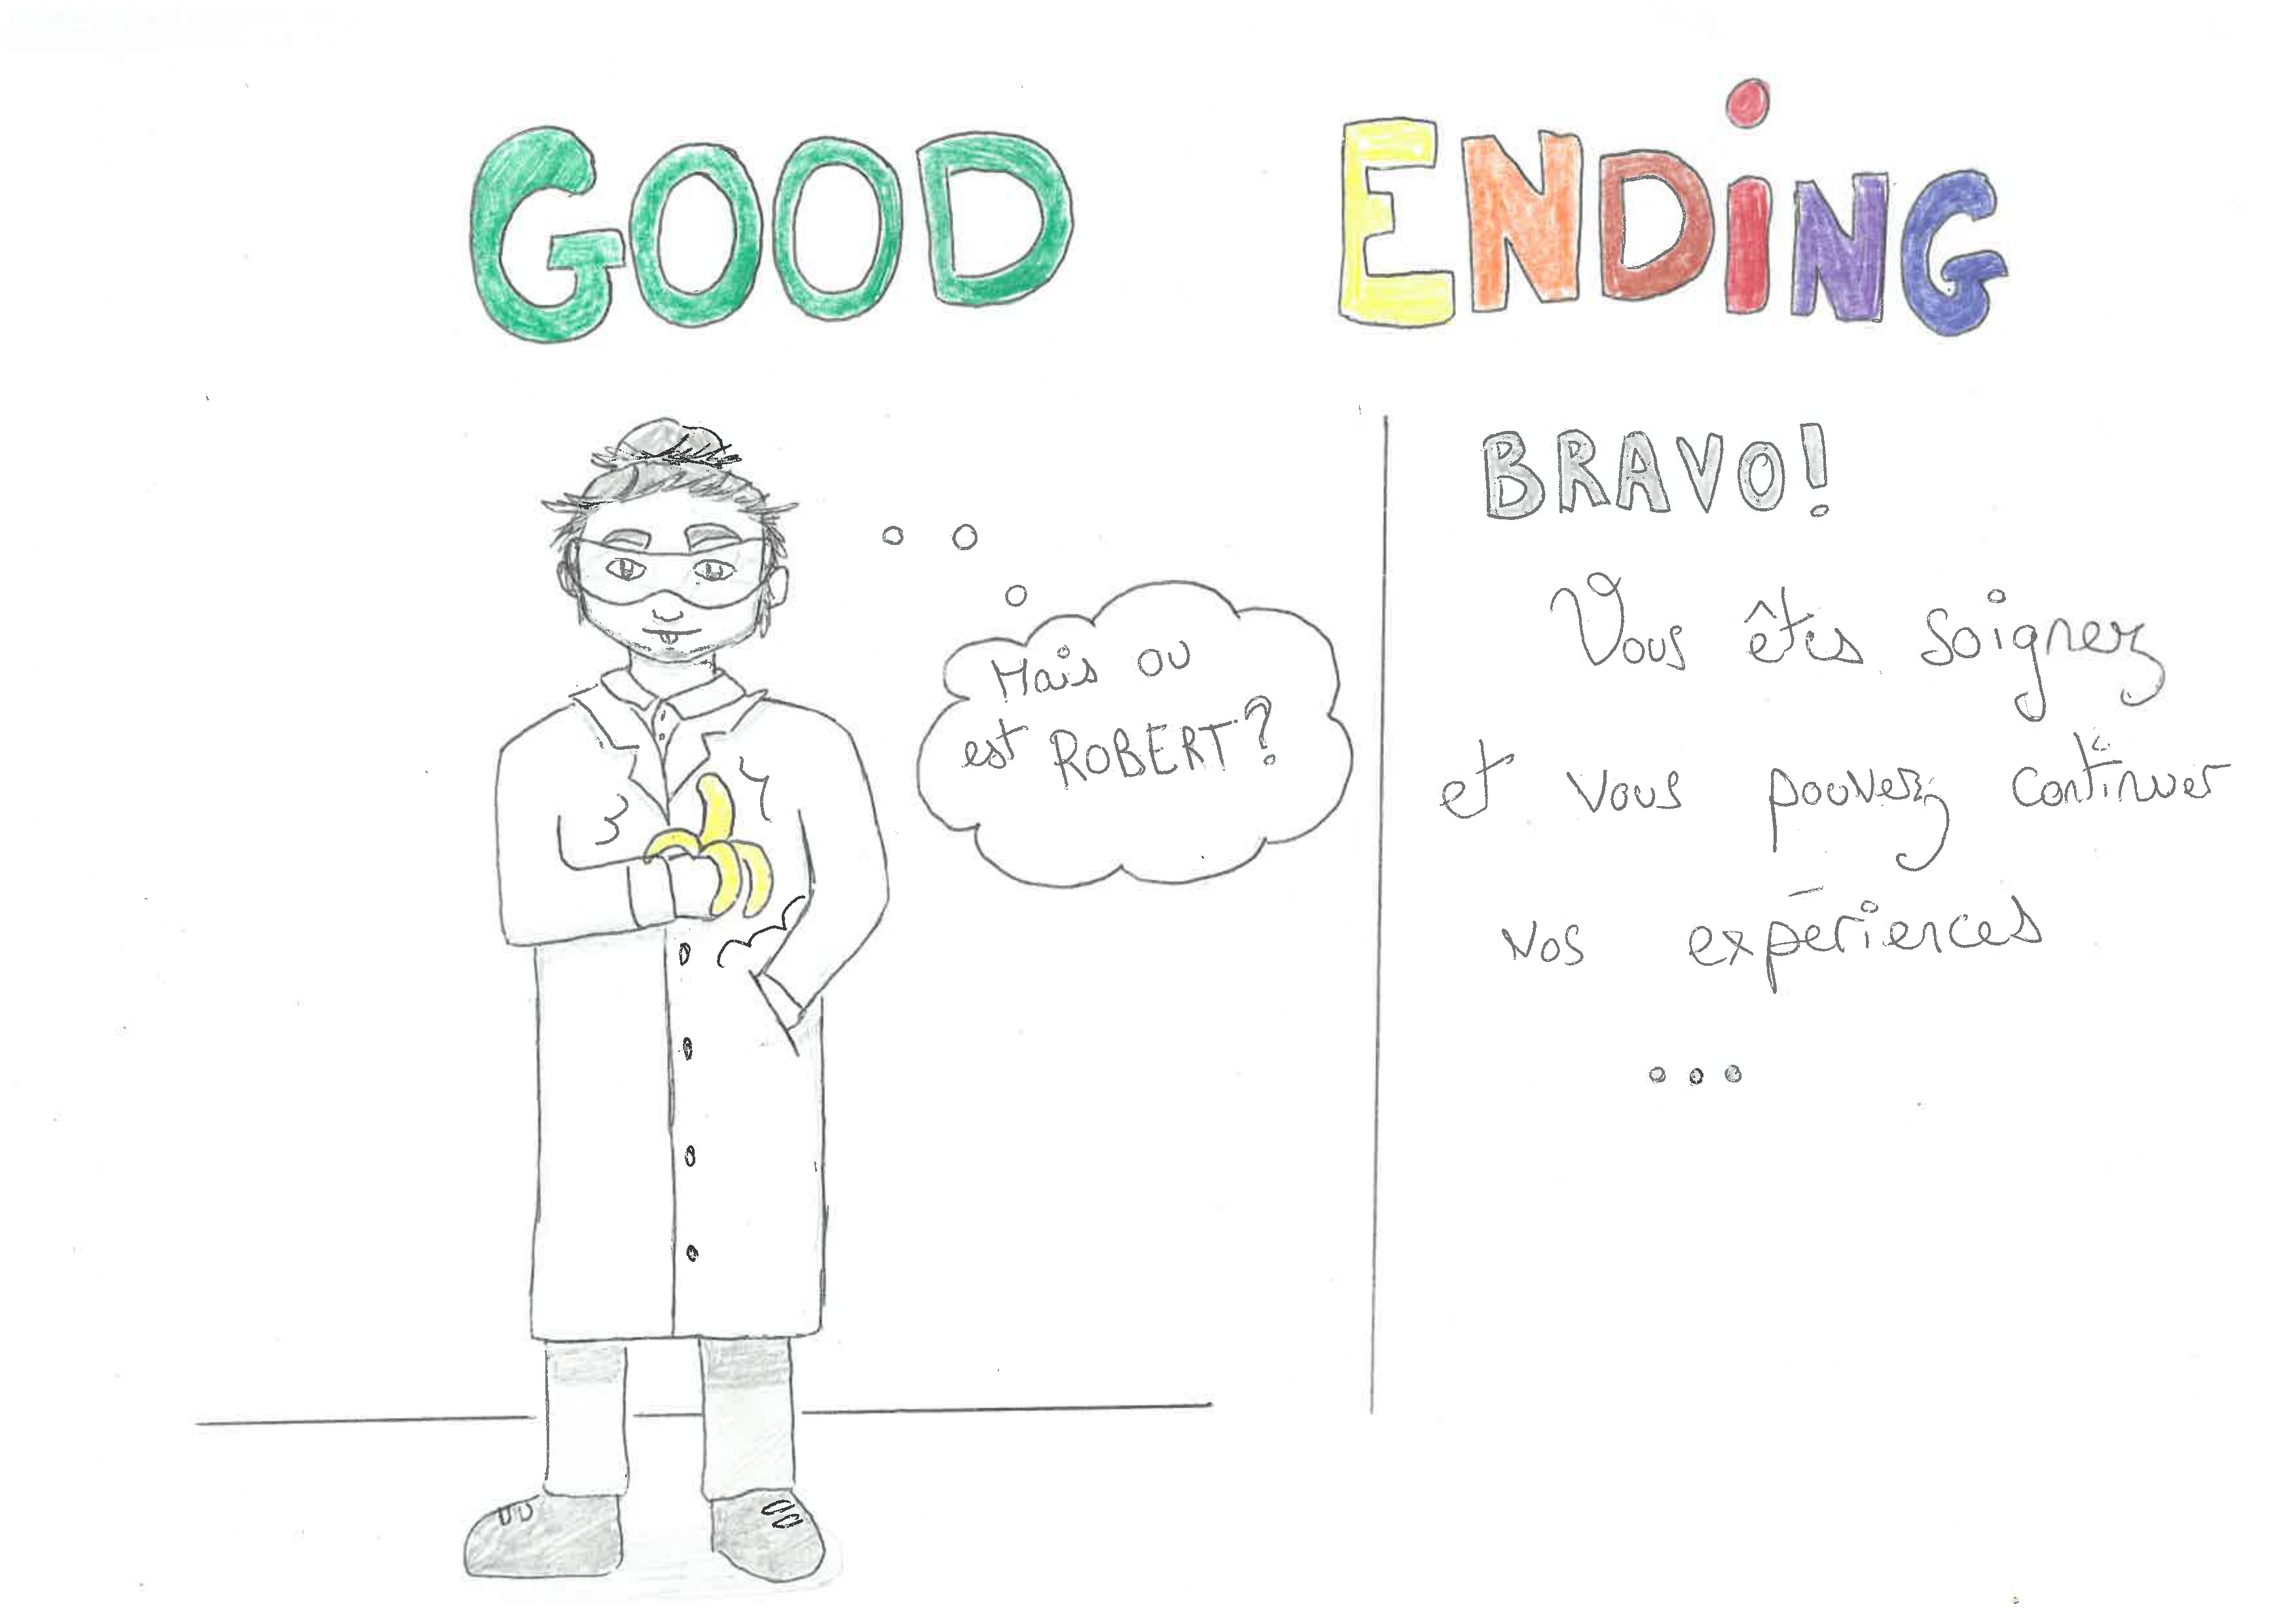 GOOD ENDiNG
Mais ou
est ROBERT?
BRAVO!
Vous êtes soignez
et vous pouvez continuer
vos expériences
...